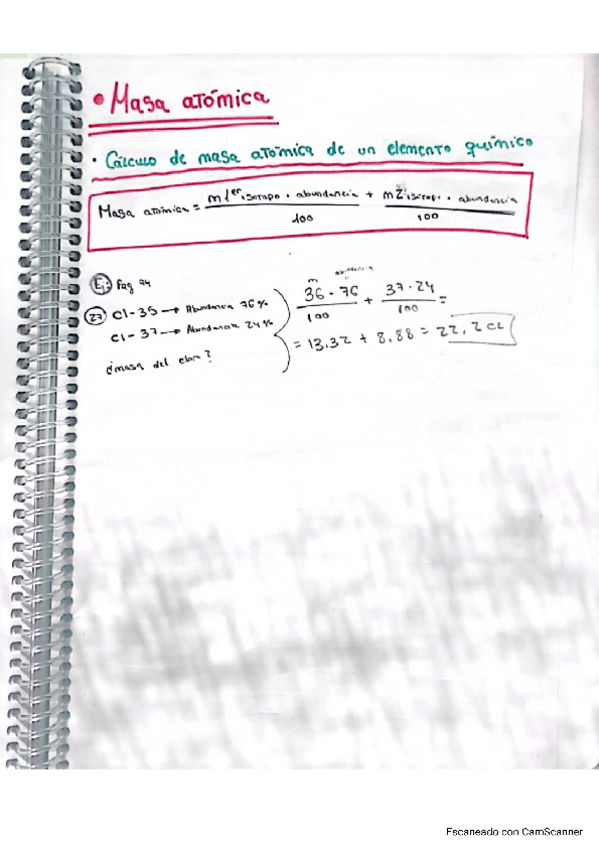 • Masa atómica
• Cálculo de masa atómica de un elemento químico
Masa atómica = m 1er isotopo · abundancia / 100 + m 2 isotopo · abundancia / 100
Ej: Pag 74
27 Cl-35 → Abundancia 76%
Cl-37 → Abundancia 24%
¿masa del cloro?
m abundancia
36 · 76 / 100 + 37 · 24 / 100 =
= 13,32 + 8,88 = 22,2 CL
Escaneado con CamScanner